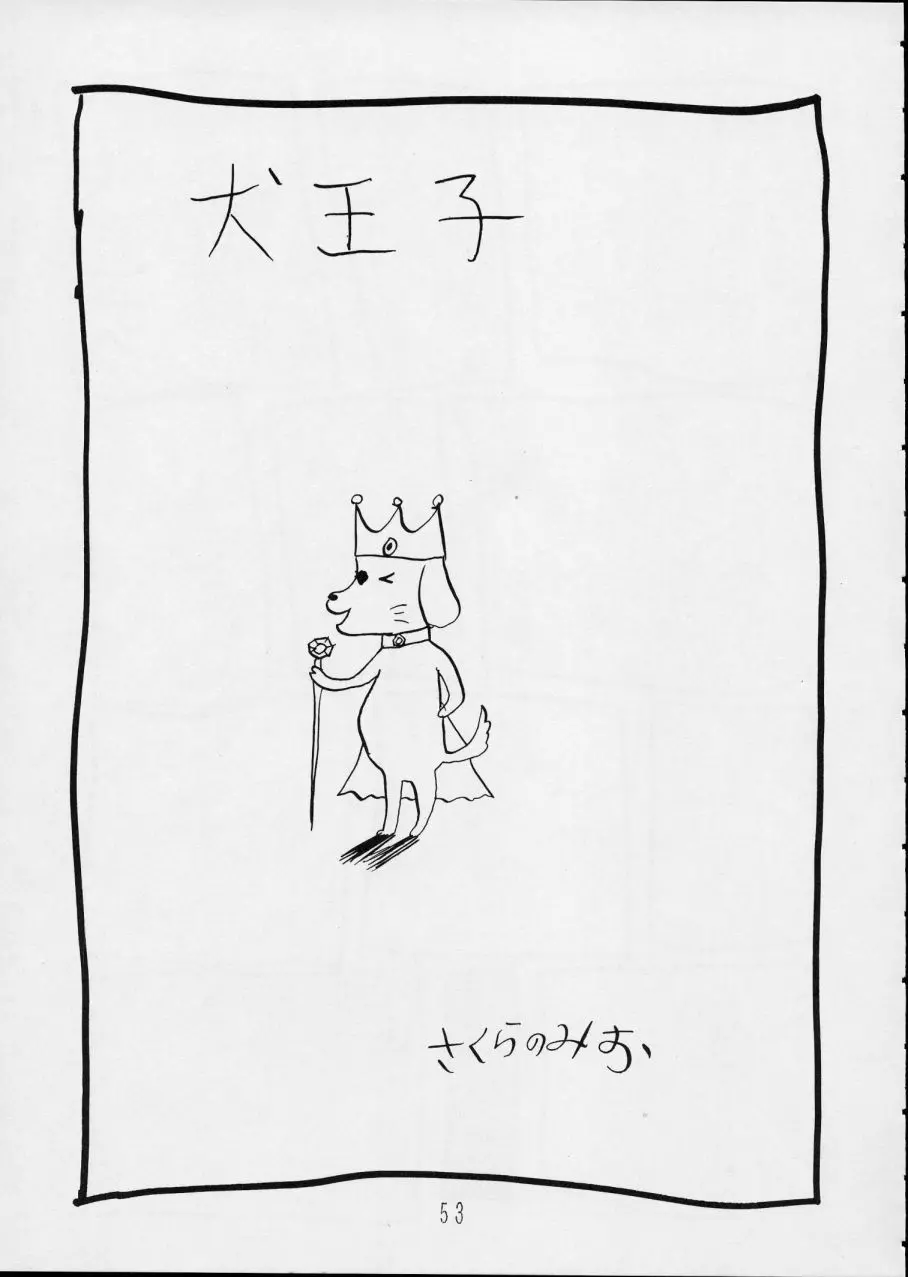 犬王子
さくらのみお
53